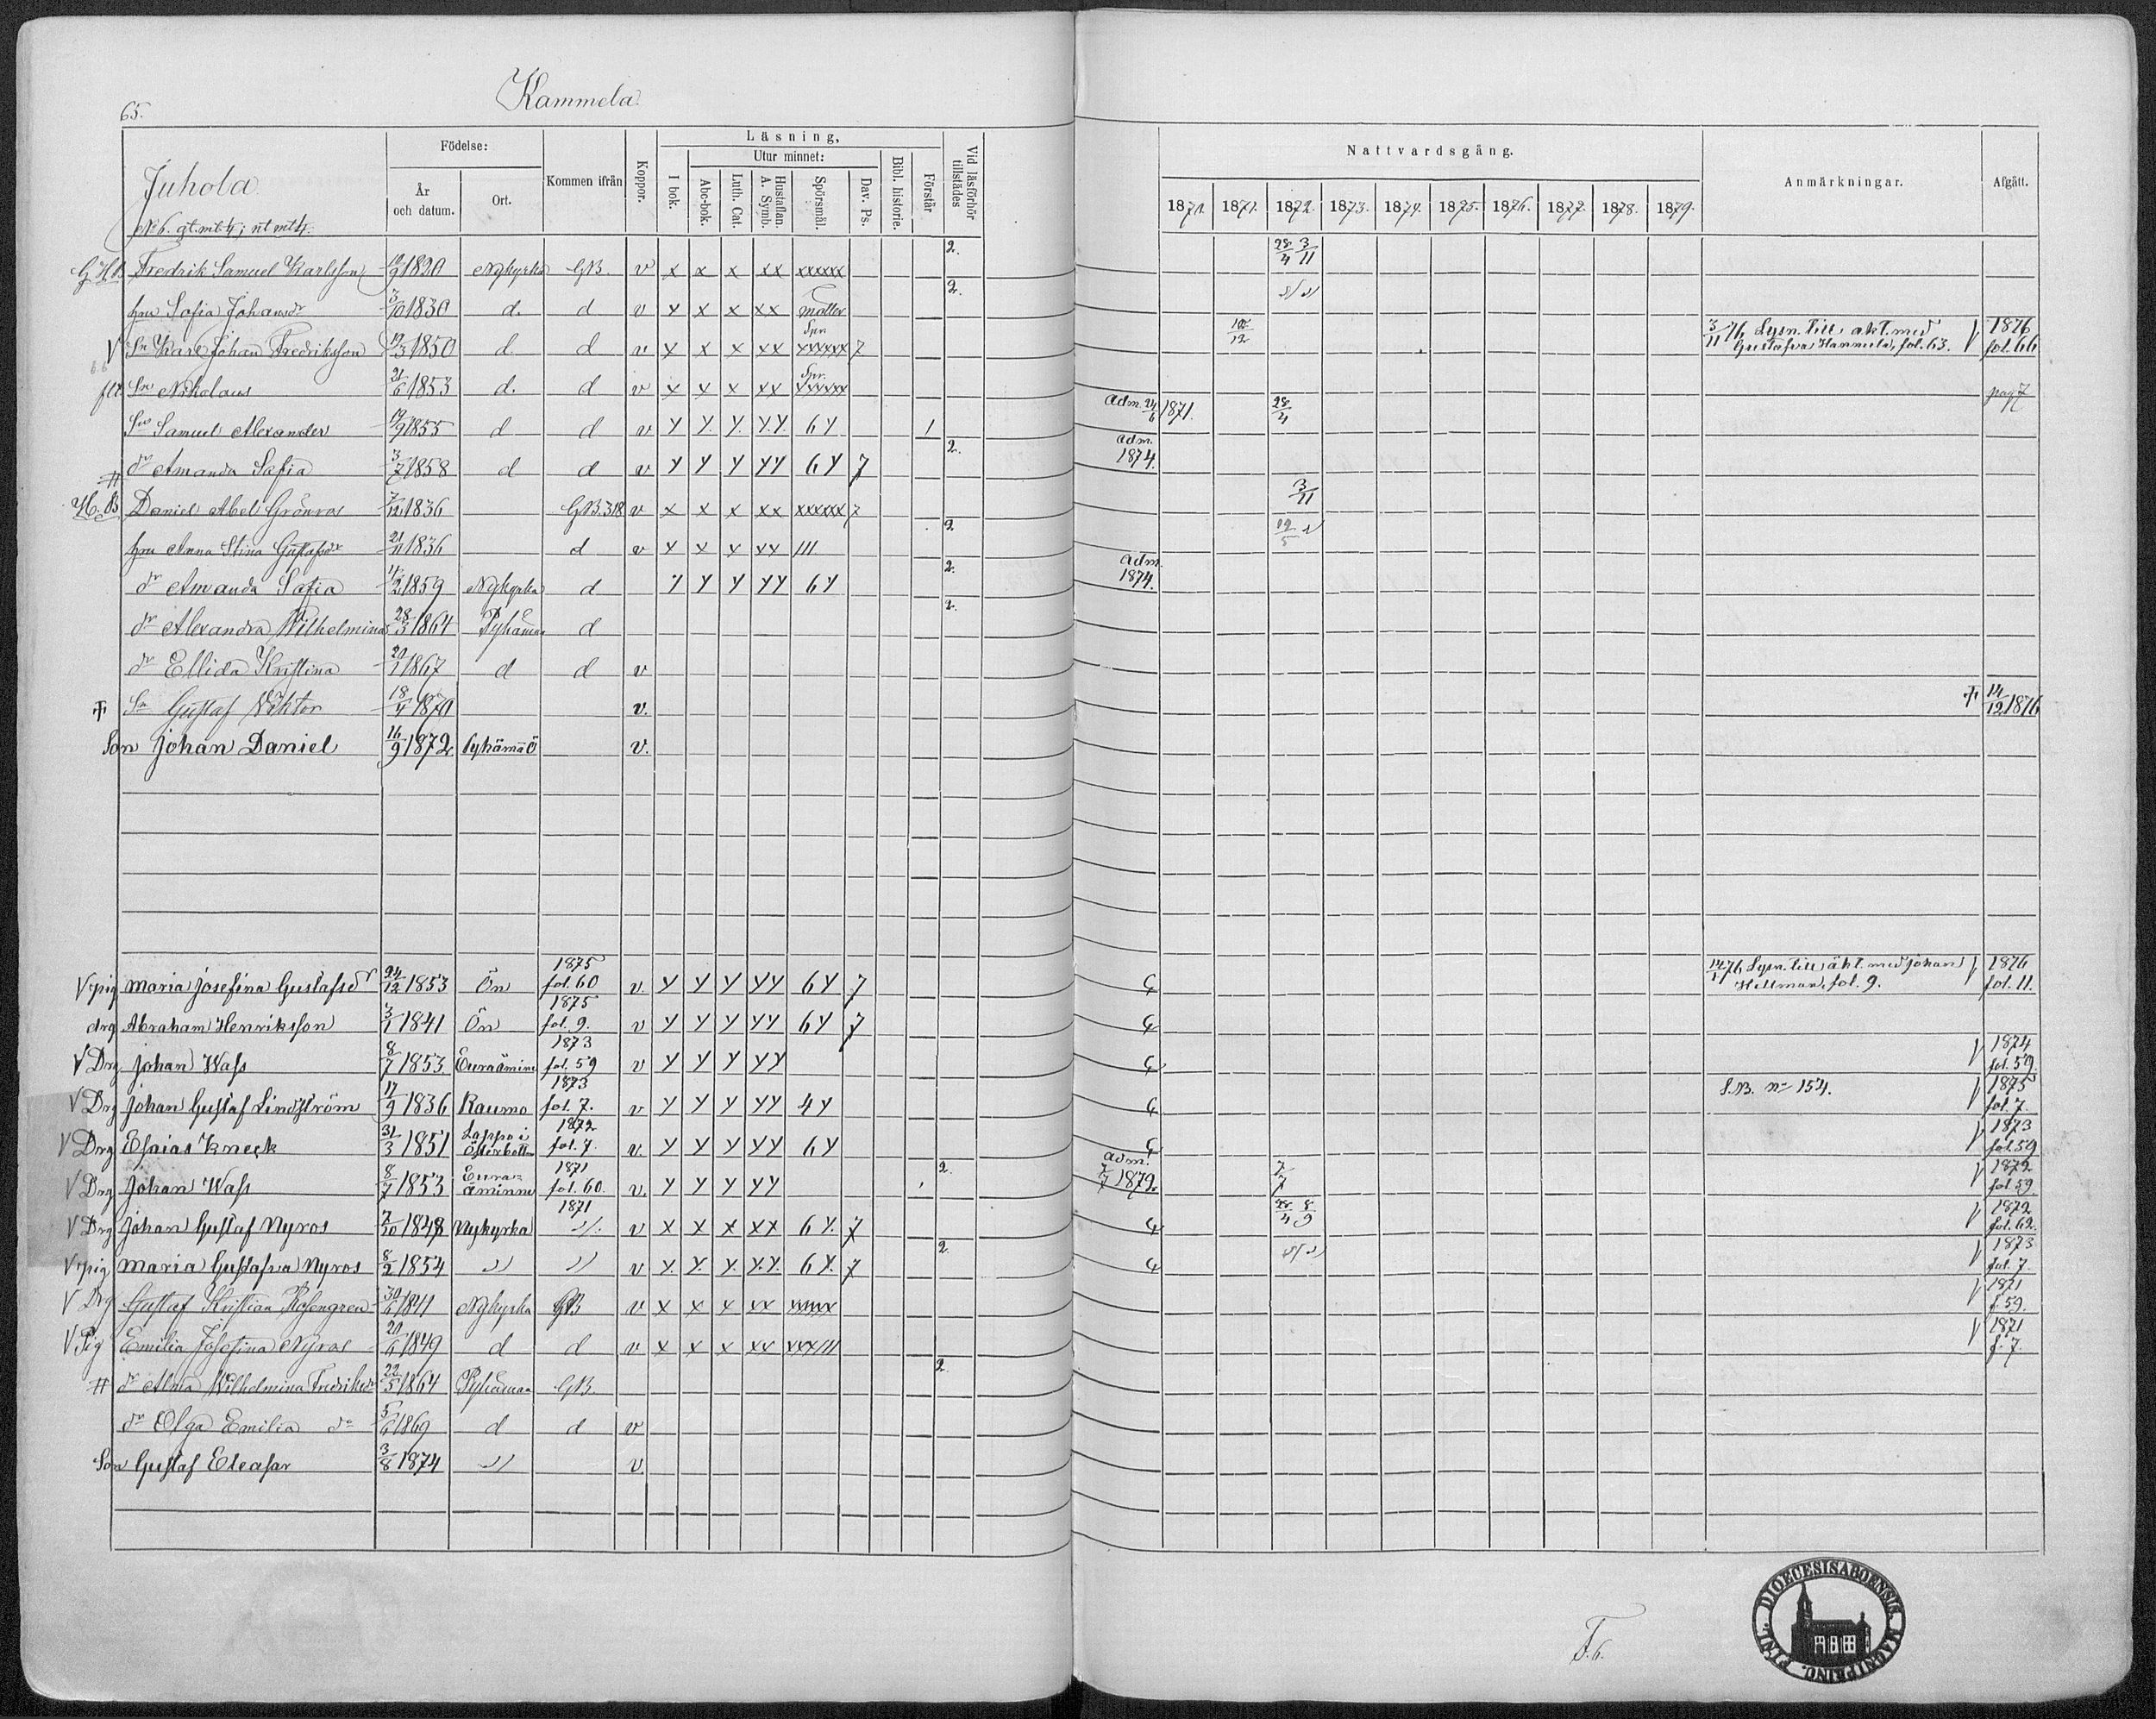 65.
Kammela
Juhola
No 6. gt. mt. 1/4; nt mt 1/4.
Födelse:
År och datum.
Ort.
Kommen ifrån
Koppor.
Läsning,
I bok.
Utur minnet:
Abc-bok.
Luth. Cat.
Hustaflan. A. Symb.
Spörsmål.
Dav. Ps.
Bibl. historie.
Förstår
Vid läsförhör tillstädes
Nattvardsgång.
1870. 1871. 1872. 1873. 1874. 1875. 1876. 1877. 1878. 1879.
Anmärkningar.
Afgått.
Fredrik Samuel Karlsson 1820 Nykyrka GB. v x x x xx xxxxxx 2. 28/4 3/11
hru Sofia Johansdr 3/10 1830 d. d v x x x xx 2.
V Sn Karl Johan Fredriksson 1850 d d v x x x xx Spr. xxxxxx 7 10/12 3/11 76 Lysn. till äkt. med Gustafva Hannula, fol. 63. 1876 fol. 66
Sn Nikolaus 21/6 1853 d. d v x x x xx Spr. xxxxxx pag 7
Sn Samuel Alexander 1855 d d v y y y yy 6 y 1 Adm. 24/6 1871. 28/4
dr Amanda Sofia 3/7 1858 d d v y y y yy 6 y 7 2. Adm. 1874.
H. B Daniel Abel Grönros 7/12 1836 GB. 318 v x x x xx xxxxxx 7 3/11
hru Anna Stina Gustafsdr 21/11 1836 d v x x x xx 111 2. 12/5
dr Amanda Sofia 1859 Nykyrka d y y y yy 6 y 2. Adm. 1874.
dr Alexandra Wilhelmina 28/3 1864 Pyhämaa d 2.
dr Ellida Kristina 20/1 1867 d d v
Sn Gustaf Viktor 18/4 1870 v. 14/12 1876
Son Johan Daniel 16/9 1872 Pyhämaö v.
V pig Maria Josefina Gustafsdr 24/12 1853 Ön 1875 fol. 60 v. y y y yy 6 y 7 14/1 76 Lysn. till äkt. med Johan Hellman, fol. 9. 1876 fol. 11.
drg Abraham Henriksson 3/1 1841 Ön 1875 fol. 9. v y y y yy 6 y 7
V Drg Johan Wass 8/7 1853 Euraåminne 1873 fol. 59 v y y y yy 1874 fol. 59.
V Drg Johan Gustaf Lindström 17/9 1836 Raumo 1873 fol. 7. v y y y yy 4 y S.B. no 154. 1875 fol. 7.
V Drg Esaias Kneck 31/3 1851 Lappo i Österbotten 1872 fol. 7. v. y y y yy 6 y 1873 fol. 59
V Drg Johan Wass 8/7 1853 Euraåminne 1871 fol. 60. v. y y y yy 2. Adm. 7/7 1872. 7/7 1872 fol. 59.
V Drg Johan Gustaf Nyros 7/10 1848 Nykyrka 1871 v x x x xx 6 y. 7 28/4 8/9 1872 fol. 62.
V pig Maria Gustafva Nyros 8/2 1854 v y. y. y. y.y. 6 y. 7 2. 1873 fol. 7.
V Drg Gustaf Kristian Rosengren 30/6 1841 Nykyrka GB v x x x xx xxxxxx 1871 f. 59.
V Pig Emilia Josefina Nyros 20/6 1849 d d v x x x xx xxx111 1871 f. 7.
dr Alma Wilhelmina Fredriksdr 22/5 1864 Pyhämaa GB. 2
dr Olga Emilia do 5/6 1869 d d v
Son Gustaf Eleasar 3/8 1874 v.
F. 6.
DIOECESIS ABOENSIS